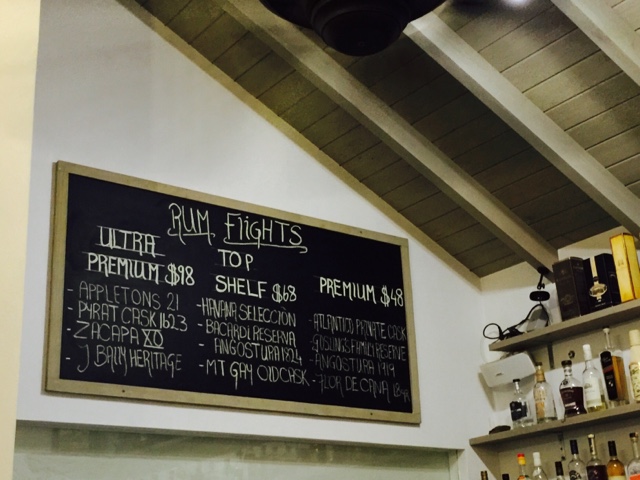 RUM FliGHTS
ULTRA
PREMIUM $98
- APPLETONS 21
- PYRAT CASK 1623
- ZACAPA XO
- J BALLY HERITAGE
TOP
SHELF $68
- HAVANA SELECCIÓN
- BACARDI RESERVA
- ANGOSTURA 1824
- MT GAY OLD CASK
PREMIUM $48
- ATLANTICO PRIVATE CASK
- GOSLINGS FAMILY RESERVE
- ANGOSTURA 1919
- FLOR DE CANA